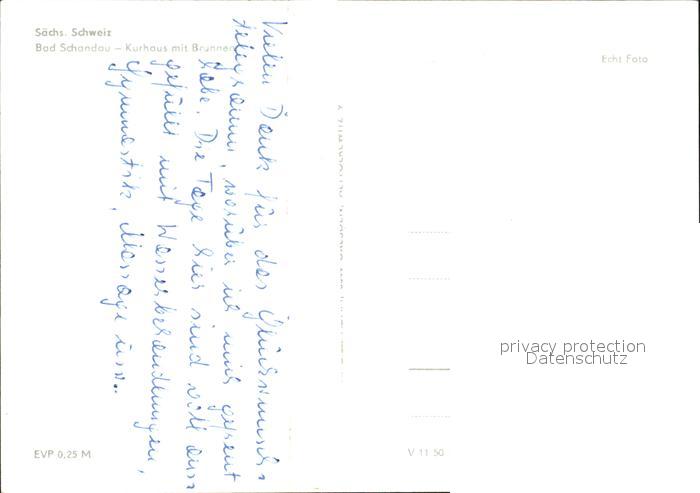 Sächs. Schweiz
Bad Schandau – Kurhaus mit Brunnen
Echt Foto
Vielen Dank für das Glückwunsch-
telegramm, worüber ich mich gefreut
habe. Die Tage hier sind voll aus-
gefüllt mit Wasserbehandlungen,
Gymnastik, Massage usw.
privacy protection
Datenschutz
EVP 0,25 M
V 11 50